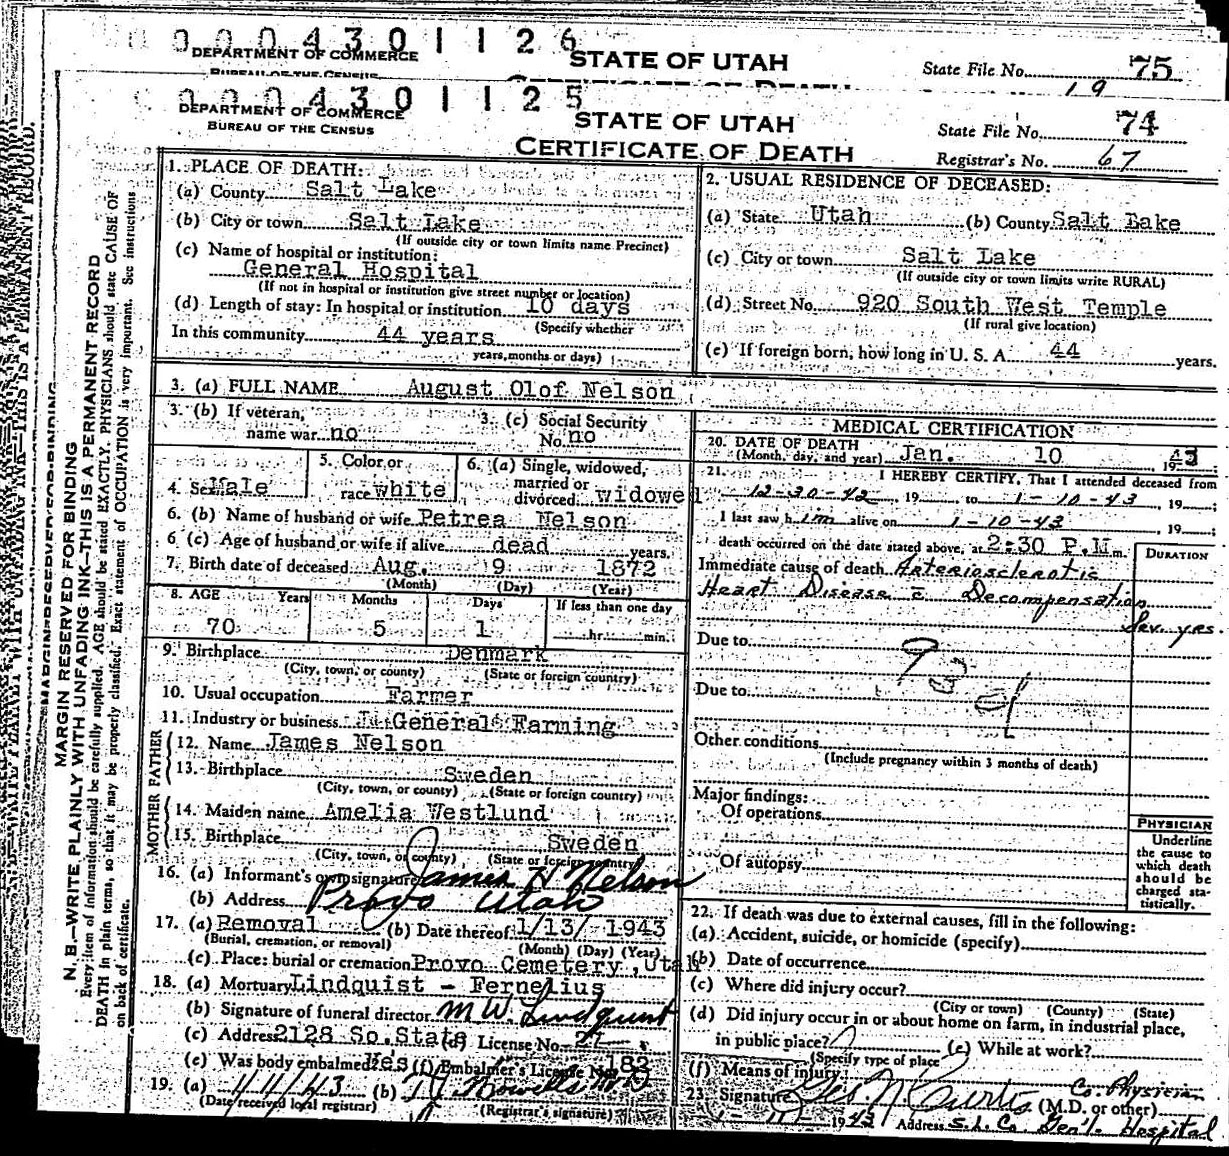 0 0 0 4 3 0 1 1 2 6
DEPARTMENT OF COMMERCE
BUREAU OF THE CENSUS
STATE OF UTAH
CERTIFICATE OF DEATH
State File No. 75
19
0 0 0 4 3 0 1 1 2 5
DEPARTMENT OF COMMERCE
BUREAU OF THE CENSUS
STATE OF UTAH
CERTIFICATE OF DEATH
State File No. 74
Registrar's No. 67
MARGIN RESERVED FOR BINDING
N. B.—WRITE PLAINLY WITH UNFADING INK—THIS IS A PERMANENT RECORD
Every item of information should be carefully supplied. AGE should be stated EXACTLY. PHYSICIANS should state CAUSE OF
DEATH in plain terms, so that it may be properly classified. Exact statement of OCCUPATION is very important. See instructions
on back of certificate.
1. PLACE OF DEATH:
(a) County Salt Lake
(b) City or town Salt Lake
(If outside city or town limits name Precinct)
(c) Name of hospital or institution:
General Hospital
(If not in hospital or institution give street number or location)
(d) Length of stay: In hospital or institution 10 days
(Specify whether
In this community 44 years
years, months or days)
2. USUAL RESIDENCE OF DECEASED:
(a) State Utah (b) County Salt Lake
(c) City or town Salt Lake
(If outside city or town limits write RURAL)
(d) Street No. 920 South West Temple
(If rural give location)
(e) If foreign born, how long in U. S. A. 44 years.
3. (a) FULL NAME August Olof Nelson
3. (b) If veteran,
name war no
3. (c) Social Security
No. no
4. Sex Male
5. Color or
race white
6. (a) Single, widowed,
married or
divorced widowed
6. (b) Name of husband or wife Petrea Nelson
6 (c) Age of husband or wife if alive dead years.
7. Birth date of deceased Aug. 9 1872
(Month) (Day) (Year)
8. AGE Years Months Days If less than one day
70 5 1 hr. min.
9. Birthplace Denmark
(City, town, or county) (State or foreign country)
10. Usual occupation Farmer
11. Industry or business General Farming
FATHER
12. Name James Nelson
13. Birthplace Sweden
(City, town, or county) (State or foreign country)
MOTHER
14. Maiden name Amelia Westlund
15. Birthplace Sweden
(City, town, or county) (State or foreign country)
16. (a) Informant's own signature James H Nelson
(b) Address Provo Utah
17. (a) Removal (b) Date thereof 1/13/ 1943
(Burial, cremation, or removal) (Month) (Day) (Year)
(c) Place: burial or cremation Provo Cemetery, Utah
18. (a) Mortuary Lindquist - Fernelius
(b) Signature of funeral director M W. Lindquist
(c) Address 2128 So. State (d) License No.
(e) Was body embalmed? Yes (f) Embalmer's License No. 182
19. (a) (b)
(Date received local registrar) (Registrar's signature)
MEDICAL CERTIFICATION
20. DATE OF DEATH
(Month, day, and year) Jan. 10 1943
21. I HEREBY CERTIFY, That I attended deceased from
12-30-42, 19 to 1-10-43, 19 ;
I last saw him alive on 1-10-43 19 ;
death occurred on the date stated above, at 2:30 P.M. m.
DURATION
Immediate cause of death Arteriosclerotic
Heart Disease c Decompensation
Sev. yrs.
Due to
Due to
Other conditions
(Include pregnancy within 3 months of death)
Major findings:
Of operations
Of autopsy
PHYSICIAN
Underline
the cause to
which death
should be
charged sta-
tistically.
22. If death was due to external causes, fill in the following:
(a) Accident, suicide, or homicide (specify)
(b) Date of occurrence
(c) Where did injury occur?
(City or town) (County) (State)
(d) Did injury occur in or about home on farm, in industrial place,
in public place? (e) While at work?
(Specify type of place
(f) Means of injury
23. Signature Geo. N. Curtis Co. Physician
(M.D. or other)
1943 Address S. L. Co. Gen'l. Hospital